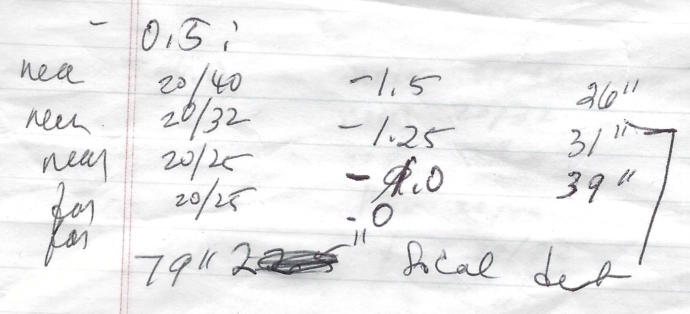 - 0.5 :
near 20/40 -1.5 26"
near 20/32 -1.25 31"
near 20/25 -1.0 39"
far 20/25 -0
far
79" 2 " focal